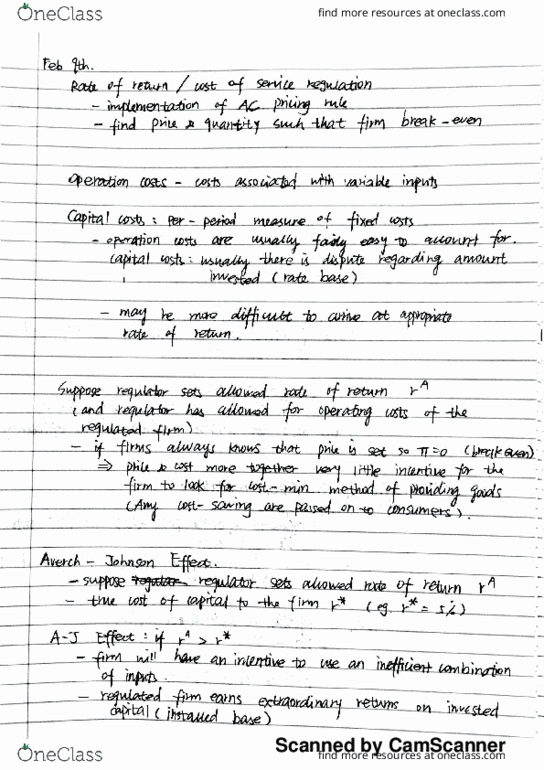 OneClass
find more resources at oneclass.com
Feb 9th.
Rate of return / cost of service regulation
- implementation of AC pricing rule
- find price & quantity such that firm break-even
Operation costs - costs associated with variable inputs
Capital costs : per-period measure of fixed costs
- operation costs are usually fairly easy to account for.
capital costs : usually there is dispute regarding amount
invested (rate base)
- may be more difficult to arrive at appropriate
rate of return.
Suppose regulator sets allowed rate of return r^A
(and regulator has allowed for operating costs of the
regulated firm)
- if firms always knows that price is set so π=0 (break even)
⇒ price & cost move together very little incentive for the
firm to look for cost-min method of providing goods
(Any cost-saving are passed on to consumers).
Averch - Johnson Effect.
- suppose regulator regulator sets allowed rate of return r^A
- true cost of capital to the firm r* (eg. r* = 5%)
A-J Effect : if r^A > r*
- firm will have an incentive to use an inefficient combination
of inputs.
- regulated firm earns extraordinary returns on invested
capital (installed base)
Scanned by CamScanner
OneClass
find more resources at oneclass.com